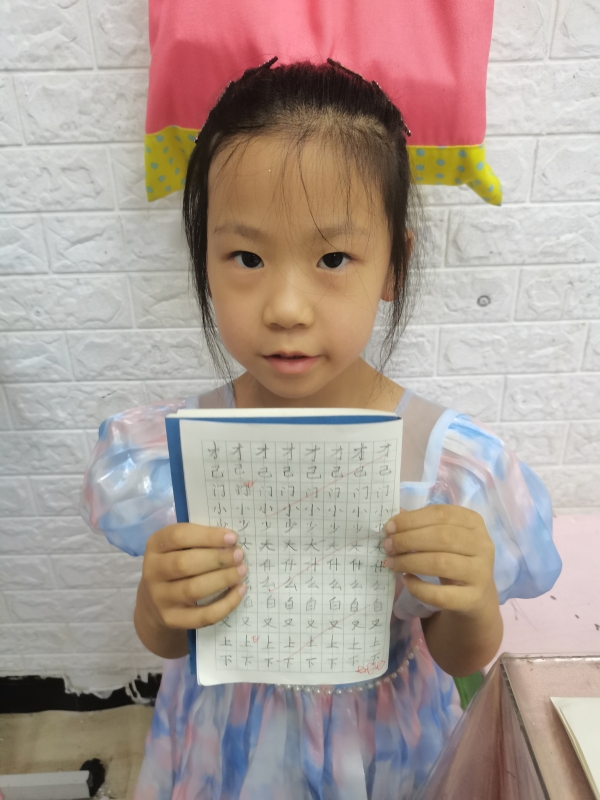 才 才 才 才 才 才 才 才
己 己 己 己 己 己 己 己
门 门 门 门 门 门 门 门
小 小 小 小 小 小 小 小
少 少 少 少 少 少 少
大 大 大 大 大 大
什 什 什 什 什 什
么 么 么 么 么
自 自 自 自 自 自
又 又 又 又 又 又 又 又
上 上 上 上 上 上 上 上
下 下 下 下 下 下 下 下